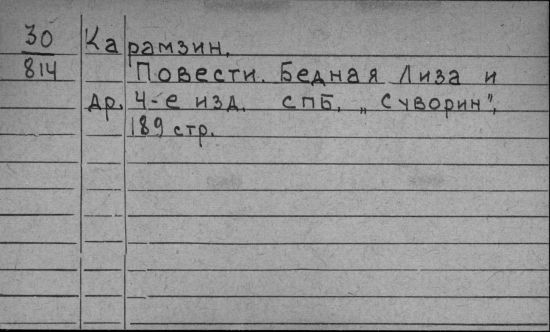 30 Карамзин.
814 Повести. Бедная Лиза и
др. 4-е изд. СПБ, „Суворин",
189 стр.